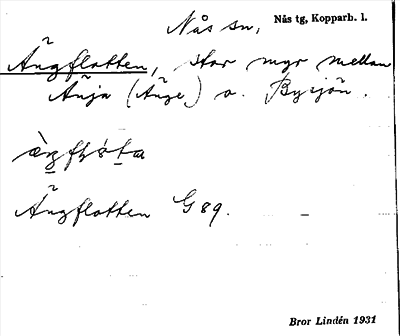 Nås sn, Nås tg, Kopparb. l.
Ängflotten, stor myr mellan
Änja (Änge) o. Bysjön.
Ängflotten G 89.
Bror Lindén 1931